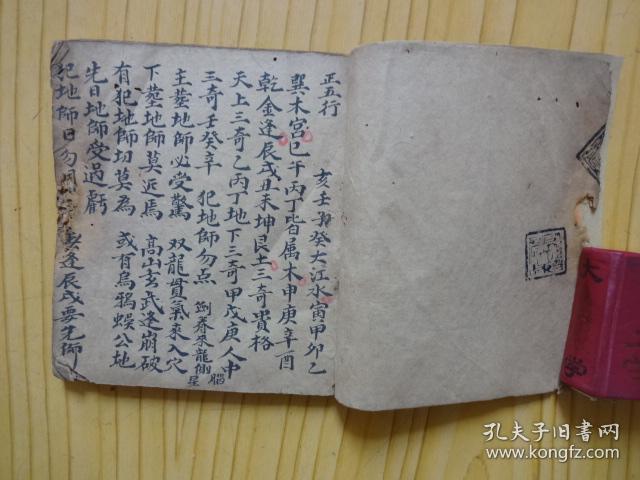 正五行
亥壬子癸大江水寅甲卯乙
巽木宮巳午丙丁皆属木申庚辛酉
乾金逢辰戌丑未坤艮土三奇貴格
天上三奇乙丙丁地下三奇甲戊庚人中
三奇壬癸辛 犯地師勿点 劍脊來龍倒
腦星
主塟地師必受驚 双龍貫氣來入穴
下塟地師莫近焉 高山玄武逢崩破
有犯地師切莫為 或有烏鴉蜈公地
先日地師受過虧
犯地師日勿 逢辰戌要先師
大
孔夫子旧書网
www.kongfz.com